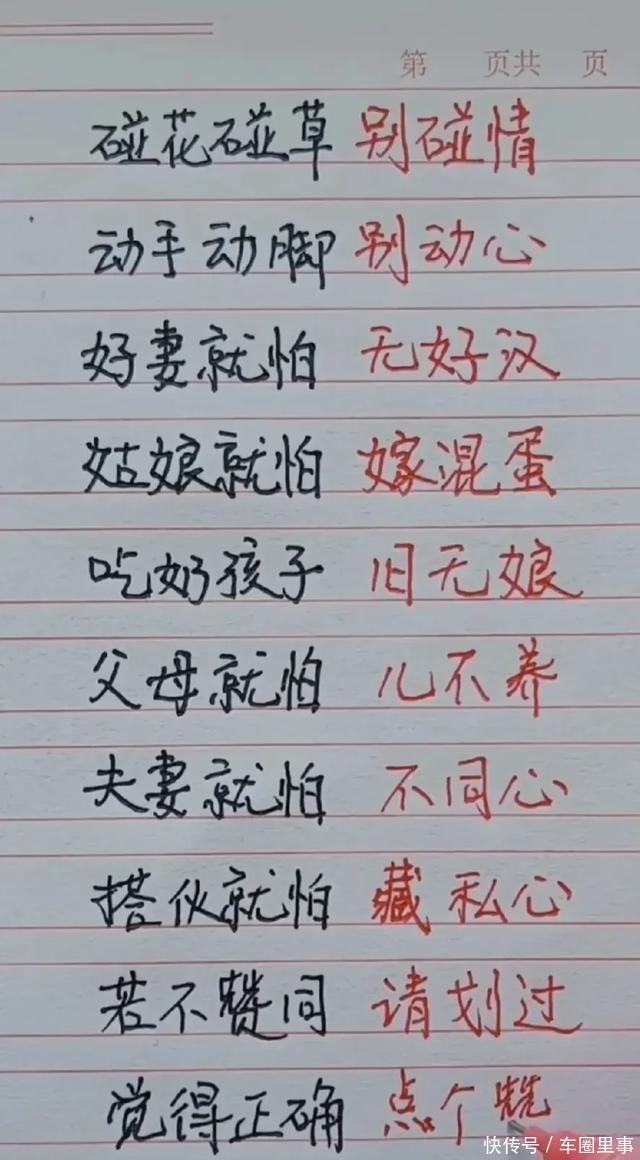 第 页共 页
碰花碰草 别碰情
动手动脚 别动心
好妻就怕 无好汉
姑娘就怕 嫁混蛋
吃奶孩子 旧无娘
父母就怕 儿不养
夫妻就怕 不同心
搭伙就怕 藏私心
若不赞同 请划过
觉得正确 点个赞
快传号/车圈里事